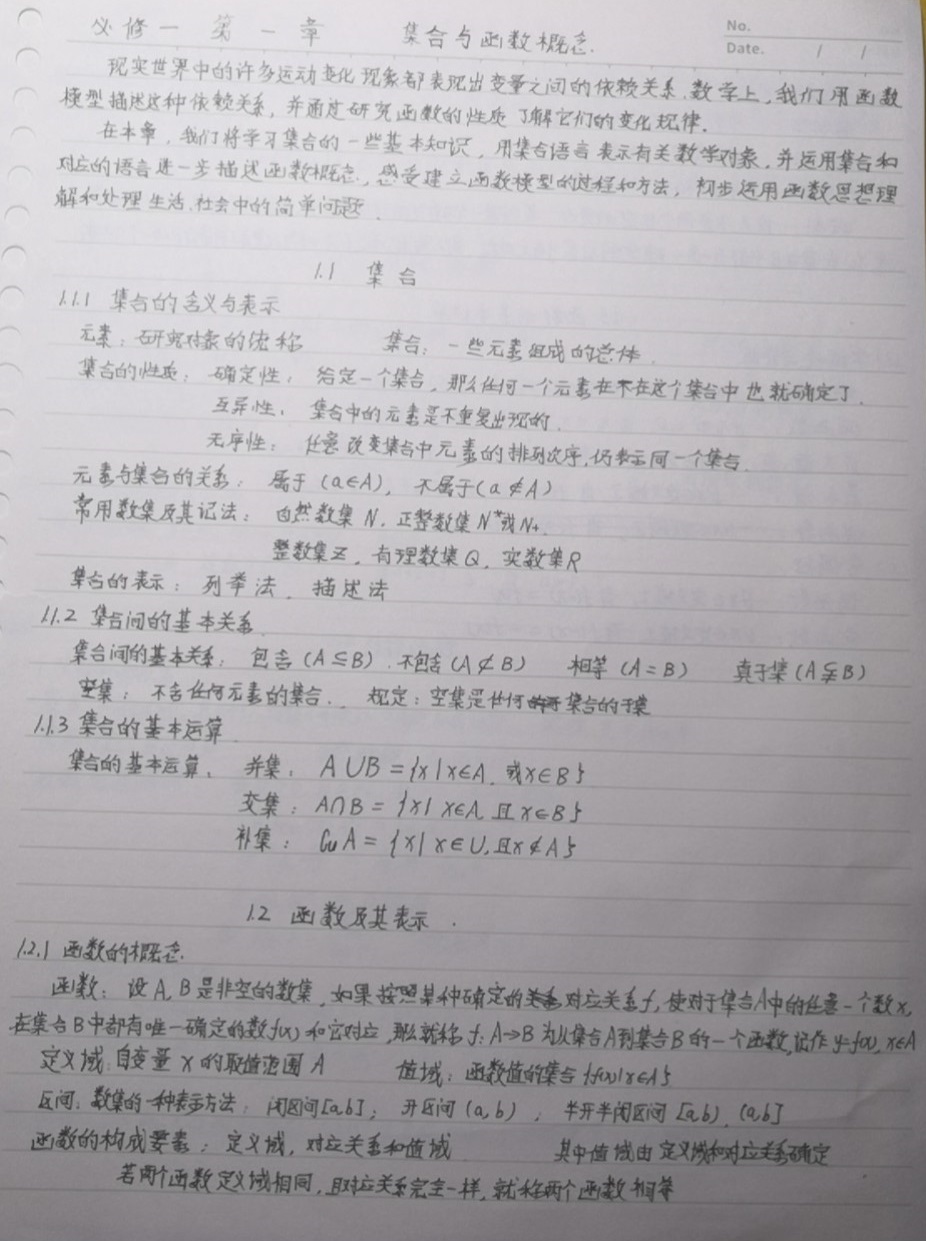 必修一 第一章 集合与函数概念.
No.
Date. / /
现实世界中的许多运动变化现象都表现出变量之间的依赖关系.数学上,我们用函数
模型描述这种依赖关系,并通过研究函数的性质了解它们的变化规律.
在本章,我们将学习集合的一些基本知识,用集合语言表示有关数学对象,并运用集合和
对应的语言进一步描述函数概念,感受建立函数模型的过程和方法,初步运用函数思想理
解和处理生活.社会中的简单问题.
1.1 集合
1.1.1 集合的含义与表示
元素:研究对象的统称 集合:一些元素组成的总体.
集合的性质:确定性:给定一个集合,那么任何一个元素在不在这个集合中也就确定了.
互异性:集合中的元素是不重复出现的.
无序性:任意改变集合中元素的排列次序,仍表示同一个集合.
元素与集合的关系:属于(a∈A),不属于(a∉A)
常用数集及其记法:自然数集N.正整数集N*或N+.
整数集Z,有理数集Q.实数集R
集合的表示:列举法.描述法
1.1.2 集合间的基本关系.
集合间的基本关系:包含(A⊆B).不包含(A⊄B) 相等(A=B) 真子集(A⫋B)
空集:不含任何元素的集合. 规定:空集是任何集合的子集
1.1.3 集合的基本运算.
集合的基本运算: 并集:A∪B={x|x∈A.或x∈B}
交集:A∩B={x|x∈A.且x∈B}
补集:∁UA={x|x∈U.且x∉A}
1.2 函数及其表示.
1.2.1 函数的概念.
函数:设A,B是非空的数集,如果按照某种确定的对应关系f,使对于集合A中的任意一个数x,
在集合B中都有唯一确定的数f(x)和它对应,那么就称f:A→B为从集合A到集合B的一个函数,记作y=f(x),x∈A
定义域:自变量x的取值范围A 值域:函数值的集合{f(x)|x∈A}
区间:数集的一种表示方法:闭区间[a,b];开区间(a,b),半开半闭区间[a,b).(a,b]
函数的构成要素:定义域,对应关系和值域 其中值域由定义域和对应关系确定
若两个函数定义域相同,且对应关系完全一样,就称两个函数相等